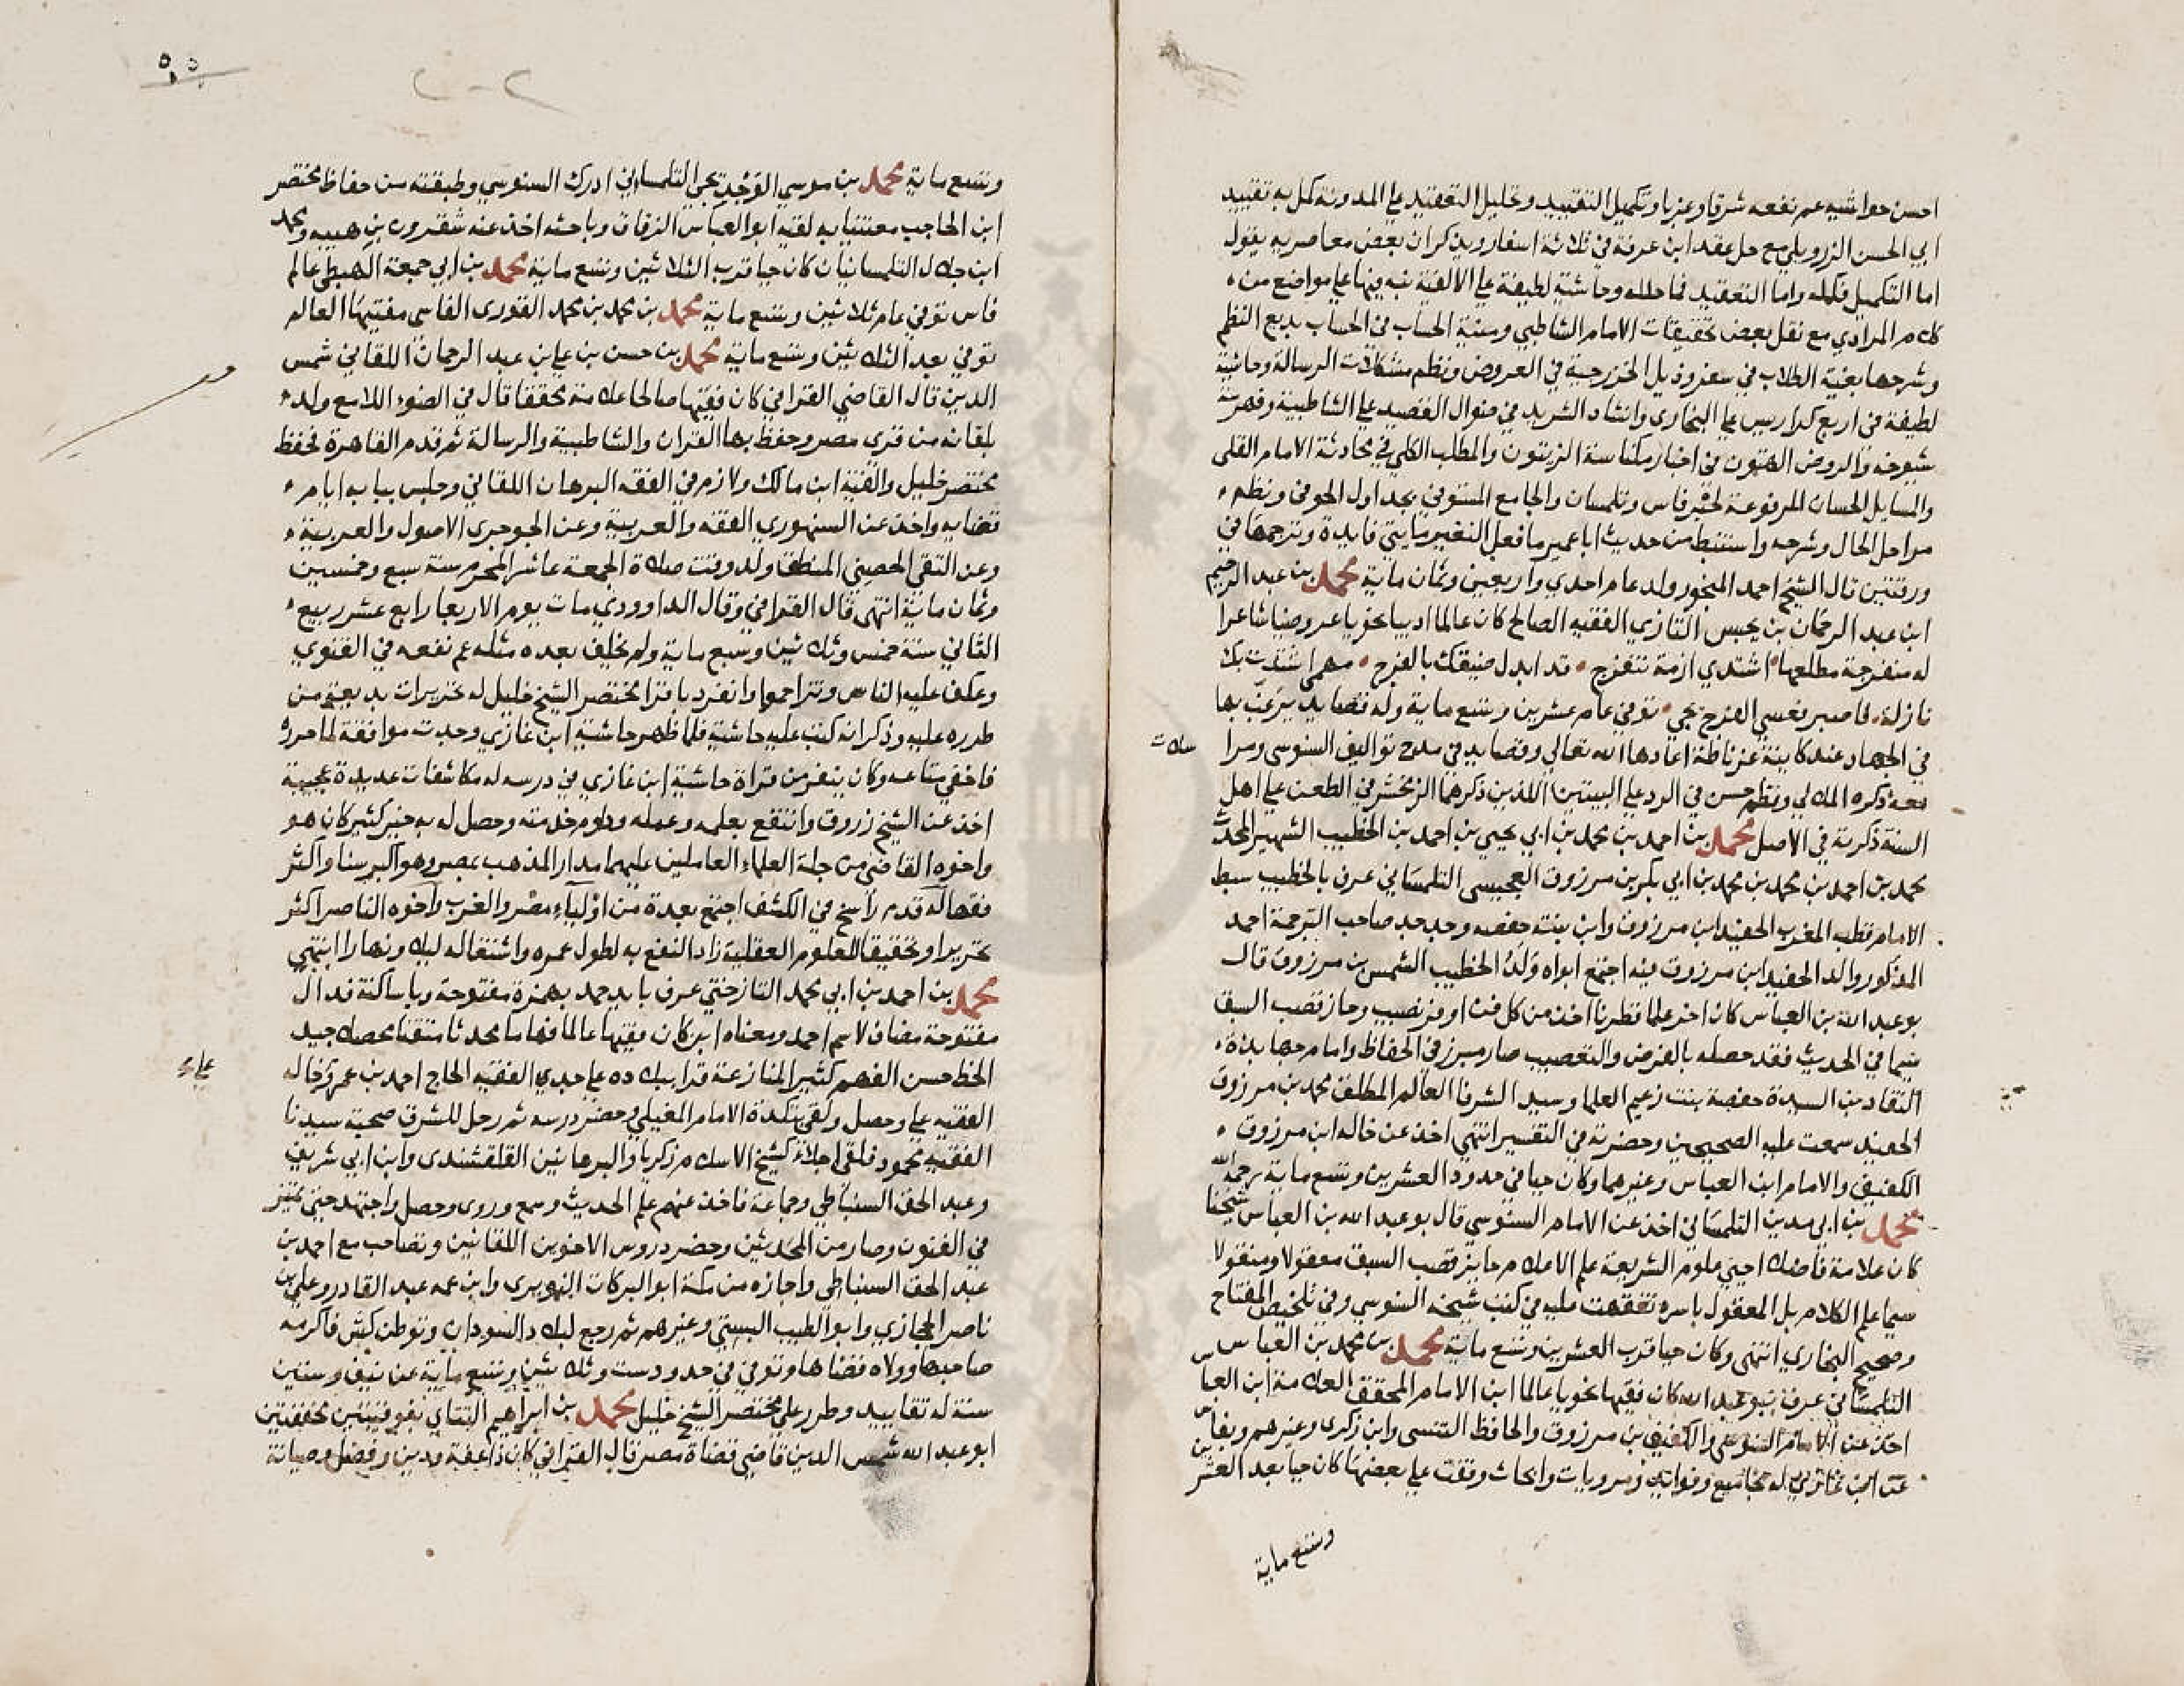 احسن حواشيه عم نفعه شرقا وغربا وتكميل التقييد وتحليل التعقيد علي المدونة كمل به تقييد
ابي الحسن الزرويلي مع حل عقد ابن عرفة في ثلاثة اسفار ويذكر ان بعض معاصريه يقول
اما التكميل فكمله واما التعقيد فما حلله وحاشية لطيفة علي الالفية نبه فيها علي مواضع من
كلام المرادي مع نقل بعض تحقيقات الامام الشاطبي ومنية الحساب في الحساب بديع النظم
وشرحها بغية الطلاب في سفر وذيل الخزرجية في العروض ونظم مشكلات الرسالة وحاشية
لطيفة في اربع كراريس علي البخاري وانشاد الشريد في ضوال القصيد علي الشاطبية وفهرسة
شيوخه والروض الهتون في اخبار مكناسة الزيتون والمطلب الكلي في محادثة الامام القلي
والمسايل الحسان المرفوعة لحبر فاس وتلمسان والجامع المستوفي بجداول الحوفي ونظم
مراحل الحال وشرحه واستنبط من حديث ابا عمير ما فعل النغير مايتي فايدة وترجمها في
ورقتين قال الشيخ احمد المنجور ولد عام احدي واربعين وثمان ماية محمد بن عبد الرحيم
ابن عبد الرحمان بن يجبس التازي الفقيه الصالح كان عالما اديبا نحويا عروضيا شاعرا
له منفرجة مطلعها اشتدي ازمة تنفرج قد ابدل ضيقك بالفرج مهما اشتدت بك
نازلة فاصبر فعسي الفرج يجي توفي عام عشرين وتسع ماية وله قصايد يرغب بها
في الجهاد عند كاينة غرناطة اعادها الله تعالي وقصايد في مدح تواليف السنوسي ومرا
سلات
معه ذكره الملالي ونظم حسن في الرد علي البيتين اللذين ذكرهما الزمخشري في الطعن علي اهل
السنة ذكرته في الاصل محمد بن احمد بن محمد بن ابي يحيي بن احمد بن الخطيب الشهير المحدث
محمد بن احمد بن محمد بن محمد بن ابي بكر بن مرزوق العجيسي التلمساني عرف بالخطيب سبط
الامام قطب المغرب الحفيد ابن مرزوق وابن بنته حفصه وجد جد صاحب الترجمة احمد
المذكور والد الحفيد ابن مرزوق فيه اجتمع ابواه ولد الخطيب الشمس بن مرزوق قال
بو عبد الله بن العباس كان اخر علما قطرنا اخذ من كل فن اوفر نصيب وحاز قصب السبق
سيما في الحديث فقد حصله بالفرض والتعصيب صار مبرز في الحفاظ وامام جهابذة
النقاد من السيدة حفصة بنت زعيم العلما وسيد الشرفا العالم المطلق محمد بن مرزوق
الحفيد سمعت عليه الصحيحين وحضرته في التفسير انتهي اخذ عن خاله ابن مرزوق
الكفيف والامام ابن العباس وغيرهما وكان حيا في حدود العشرين وتسع ماية رحمه الله
محمد بن ابي مدين التلمساني اخذ عن الامام السنوسي قال بو عبد الله بن العباس شيخنا
كان علامة فاضلا احيي علوم الشريعة علم الاعلام حايز قصب السبق معقولا ومنقولا
سيما علم الكلام بل المعقول باسره تفقهت عليه في كتب شيخه السنوسي وفي تلخيص المفتاح
وصحيح البخاري انتهى وكان حيا قرب العشرين وتسع ماية محمد بن محمد بن العباس
التلمساني عرف ببو عبد الله كان فقيها نحويا عالما ابن الامام المحقق العلامة ابن العباس
اخذ عن الامام السنوسي والكفيف بن مرزوق والحافظ التنسي وابن زكري وغيرهم وبفاس
عن ابن غازي له مجاميع وفوايد ومرويات وابحاث وقفت علي بعضها كان حيا بعد العشرين
وتسع ماية
وتسع ماية محمد بن موسي الوجديجي التلمساني ادرك السنوسي وطبقته من حفاظ مختصر
ابن الحاجب معتنيا به لقيه ابو العباس الزقاق وباحثه اخذ عنه شقرون بن هيبه ومحمد
ابن جلال التلمسانيان كان حيا قرب الثلاثين وتسع ماية محمد بن ابي جمعة الهبطي عالم
فاس توفي عام ثلاثين وتسع ماية محمد بن محمد بن محمد القوري الفاسي مفتيها العالم
توفي بعد الثلاثين وتسع ماية محمد بن حسن بن علي بن عبد الرحمان اللقاني شمس
الدين قال القاضي القرافي كان فقيها صالحا علامة محققا قال في الضوء اللامع ولد
بلقانه من قري مصر وحفظ بها القران والشاطبية والرسالة ثم قدم القاهرة فحفظ
مختصر خليل والفية ابن مالك ولازم في الفقه البرهان اللقاني وجلس ببابه ايام
قضايه واخذ عن السنهوري الفقه والعربية وعن الجوجري الاصول والعربية
وعن التقي الحصيني المنطق ولد وقت صلاة الجمعة عاشر المحرم سنة سبع وخمسين
وثمان ماية انتهى قال القرافي وقال الداوودي مات يوم الاربعا رابع عشر ربيع
الثاني سنة خمس وثلاثين وتسع ماية ولم يخلف بعده مثله عم نفعه في الفتوي
وعكف عليه الناس وتزاحموا وانفرد باقرا مختصر الشيخ خليل له تحريرات بديعة من
طرره عليه وذكر انه كتب عليه حاشية فلما ظهر حاشية ابن غازي وجدت موافقة لما حرره
فاخفي متاعه وكان ينفر من قراة حاشية ابن غازي في درسه له مكاشفات عديدة عجيبة
اخذ عن الشيخ زروق وانتفع بعلمه وعمله وداوم خدمته وحصل له به خير كثير كان هو
واخوه القاضي من جلة العلماء العاملين عليهما مدار المذهب بمصر وهو اكبر سنا واكثر
فقها له قدم راسخ في الكشف اجتمع بعدة من اولياء مصر والغرب واخوه الناصر اكثر
تحريرا وتحقيقا للعلوم العقلية زاد النفع به لطول عمره واشتغاله ليلا ونهارا انتهي
محمد بن احمد بن ابي محمد التازختي عرف بايد حمد بهمزة مفتوحة وياساكنة فدال
مفتوحة مضاف لاسم احمد ومعناه ابن كان فقيها عالما فهاما محدثا متقنا محصلا جيد
الخط حسن الفهم كثير المنازعة قرا ببلاده علي جدي الفقيه الحاج احمد بن عمر وخاله
علي
الفقيه علي وحصل ولقي بتكدة الامام المغيلي وحضر درسه ثم رحل للشرق صحبة سيدنا
الفقيه محمود فلقي اجلاء كشيخ الاسلام زكريا والبرهانين القلقشندي وابن ابي شريف
وعبد الحق السنباطي وجماعة فاخذ عنهم علم الحديث وسمع وروي وحصل واجتهد حتي تميز
في الفنون وصار من المحدثين وحضر دروس الاخوين اللقانيين وتصاحب مع احمد بن
عبد الحق السنباطي واجازه من مكة ابو البركات النويري وابن عمه عبد القادر وعلي بن
ناصر الحجازي وابو الطيب البستي وغيرهم ثم رجع لبلاد السودان وتوطن كشن فاكرمه
صاحبها وولاه قضاها وتوفي في حدود ست وثلاثين وتسع ماية عن نيف وستين
سنة له تقاييد وطرر علي مختصر الشيخ خليل محمد بن ابراهيم التتاي بفوقيتين مخففتين
ابو عبد الله شمس الدين قاضي قضاة مصر قال القرافي كان ذا عفة ودين وفضل وصيانة